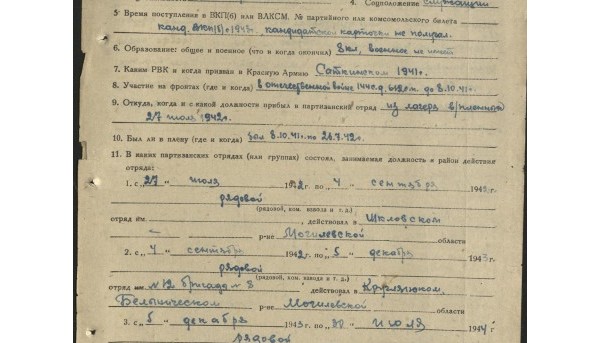 4. Соцположение служащий
5. Время поступления в ВКП(б) или ВЛКСМ. № партийного или комсомольского билета
канд. ВКП(б) с 1943г. кандидатской карточки не получал.
6. Образование: общее и военное (что и когда окончил) 8 кл, военное не имеет
7. Каким РВК и когда призван в Красную Армию Саткинском 1941г.
8. Участие на фронтах (где и когда) в отечественной войне 144 с.д. 612 с.п. до 8.10.41г.
9. Откуда, когда и с какой должности прибыл в партизанский отряд из лагеря в/пленных
27 июля 1942г.
10. Был ли в плену (где и когда) 8.10.41г. по 26.7.42г.
11. В каких партизанских отрядах (или группах) состоял, занимаемая должность и район действия
отряда:
1. с „27 “ июля 1942г. по „ 4 “ сентября 1942г.
рядовой
(рядовой, ком. взвода и т. д.)
отряд им. , действовал в Шкловском
р-не Могилевской области
2. с „ 4 “ сентября 1942г. по „ 5 “ декабря 1943г.
рядовой
(рядовой, ком. взвода и т. д.)
отряд им. №12 бригады №8 действовал в Круглянском,
Белыническом р-не Могилевской области
3. с „ 5 “ декабря 1943г. по „30 “ июля 1944г
рядовой